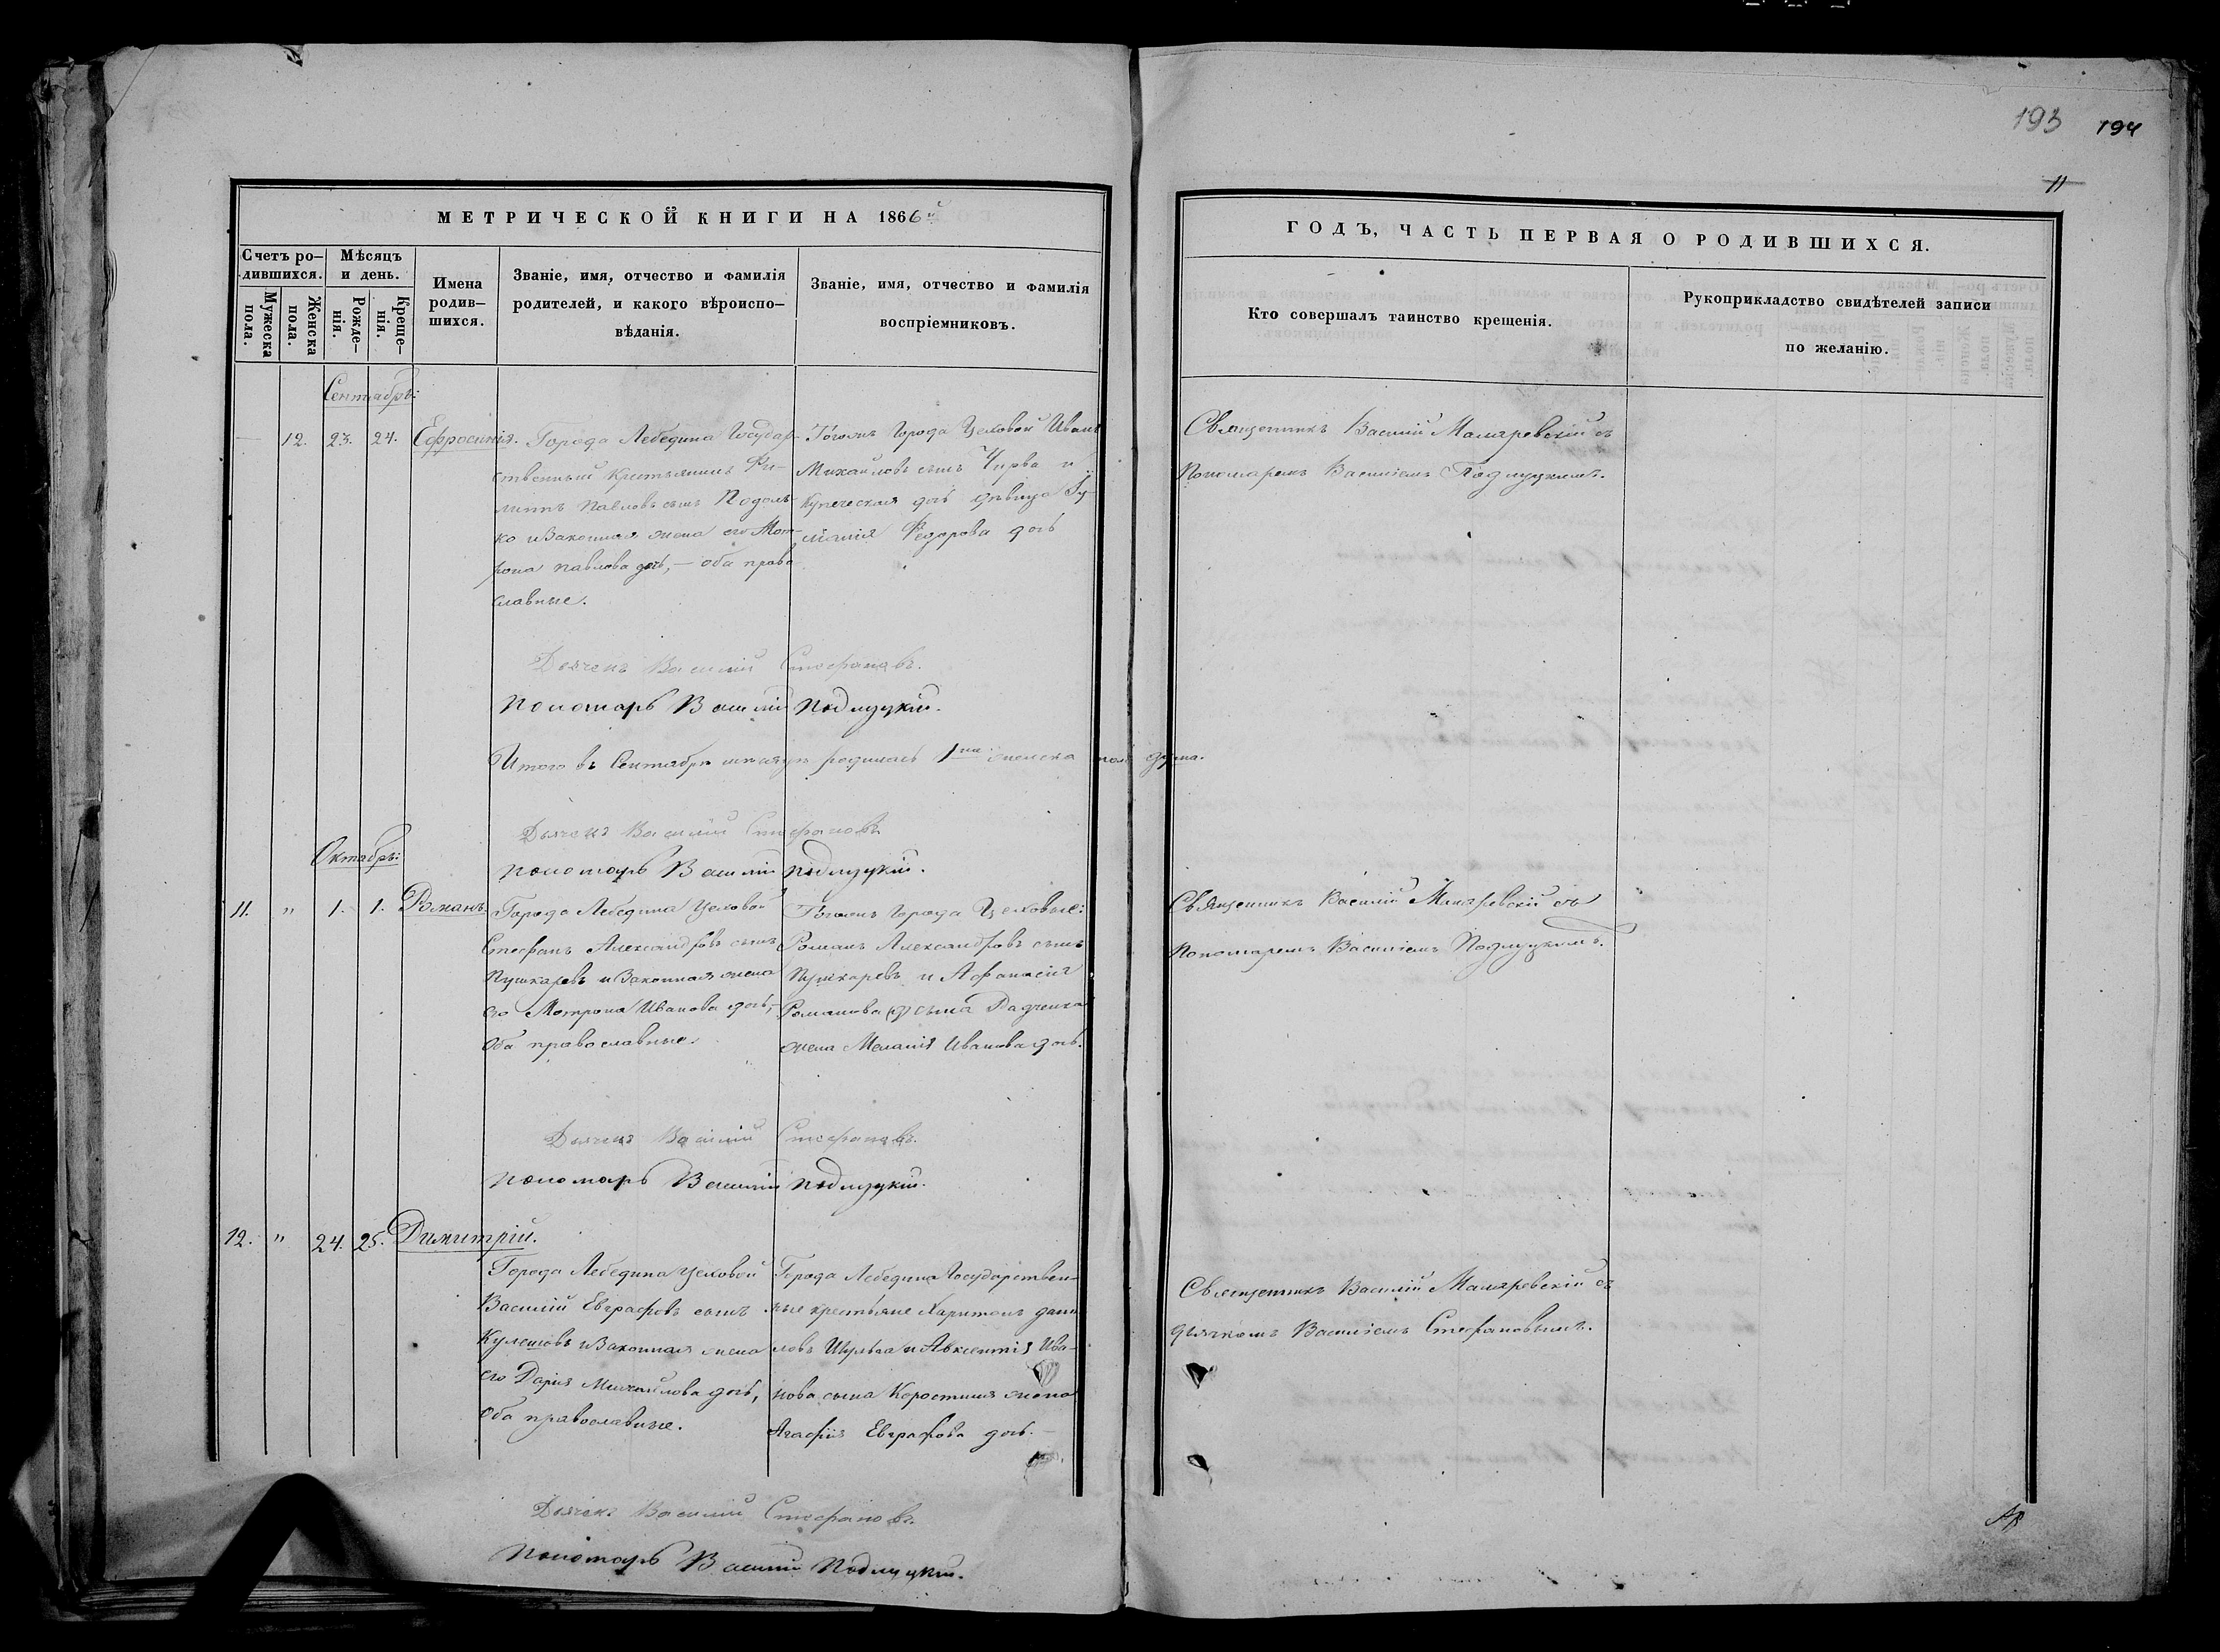 193 194
11
МЕТРИЧЕСКОЙ КНИГИ НА 1866й
ГОДЪ, ЧАСТЬ ПЕРВАЯ О РОДИВШИХСЯ.
Счетъ ро-
дившихся.
Мужеска
пола.
Женска
пола.
Мѣсяцъ
и день.
Рожде-
нія.
Креще-
нія.
Имена
родив-
шихся.
Званіе, имя, отчество и фамилія
родителей, и какого вѣроиспо-
вѣданія.
Званіе, имя, отчество и фамилія
воспріемниковъ.
Кто совершалъ таинство крещенія.
Рукоприкладство свидѣтелей записи
по желанію.
Сентябрь:
— 12. 23. 24. Ефросинія.
Города Лебедина Государ-
ственный Крестьянинъ Фи-
липпъ Павловъ сынъ
ко и Законная жена его Мот-
рона Павлова дочь, — оба право
славные.
Тогожъ Города Цеховой Иванъ
Михайловъ сынъ Чирва и
Купеческая дочь девица
Федорова дочь
Священникъ Василій Маляревскій съ
Пономаремъ Василіемъ Подлуцкимъ.
Дьячекъ Василій Стефановъ.
Пономарь Василій Подлуцкій.
Итого въ Сентябрѣ мѣсяцѣ родилась 1на женска пола душа.
Дьячекъ Василій Стефановъ
Пономарь Василій Подлуцкій.
Октябрь:
11. " 1. 1. Романъ.
Города Лебедина Цеховой
Стефанъ Александровъ сынъ
Пушкаревъ и Законная жена
его Мотрона Иванова дочь,
Оба православные.
Тогожъ Города Цеховые:
Романъ Александровъ сынъ
Пушкаревъ и Афанасія
Романова сына Радченка
жена Меланія Иванова дочь.
Священникъ Василій Маляревскій съ
Пономаремъ Василіемъ Подлуцкимъ.
Дьячекъ Василій Стефановъ.
Пономарь Василій Подлуцкій.
12. " 24. 25. Димитрій.
Города Лебедина Цеховой
Василій Евграфовъ сынъ
Кулешовъ и Законная жена
его Дарія Михайлова дочь,
Оба православные.
Города Лебедина Государствен-
ные крестьяне Харитонъ Дани
ловъ Шульга и Авксентія Ива-
нова сына Коростиля жена
Агафія Евграфова дочь. —
Священникъ Василій Маляревскій съ
дьячкомъ Василіемъ Стефановымъ.
Дьячекъ Василій Стефановъ.
Пономарь Василій Подлуцкій.